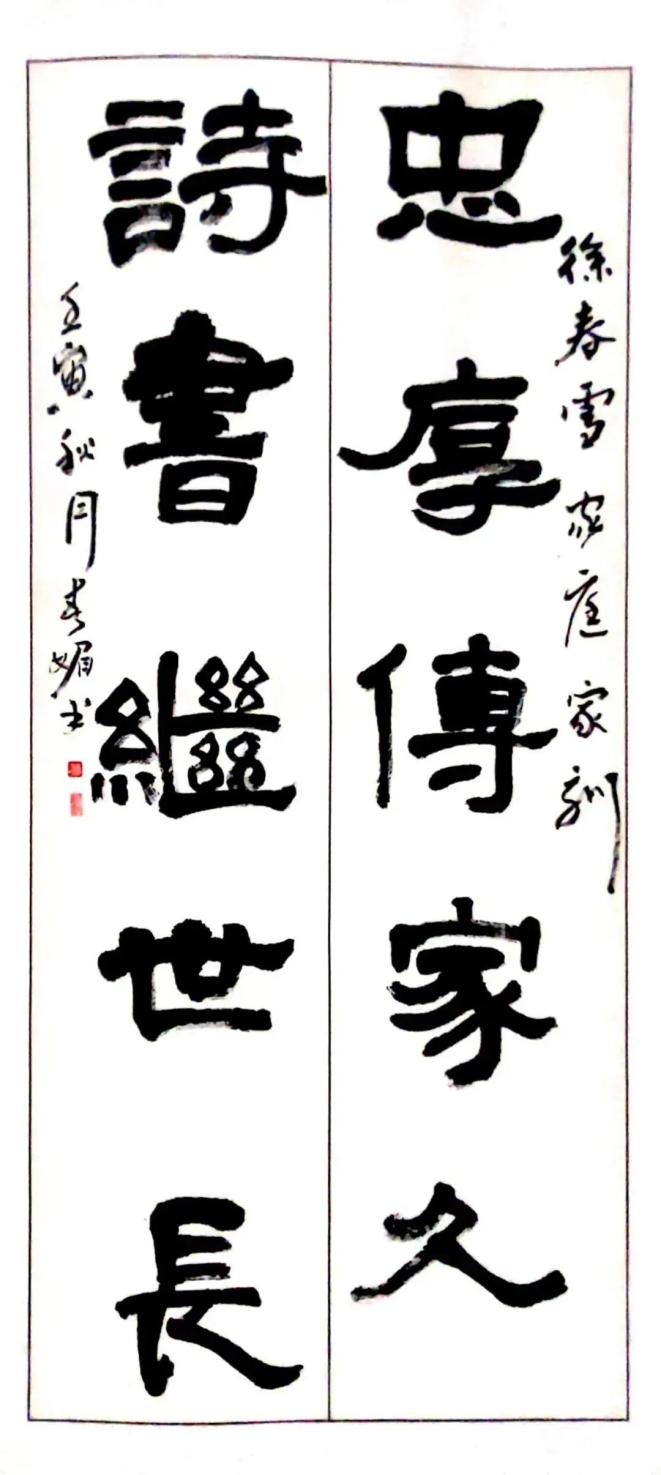 徐春雪家庭家訓
忠厚傳家久
詩書繼世長
壬寅秋月春媚书